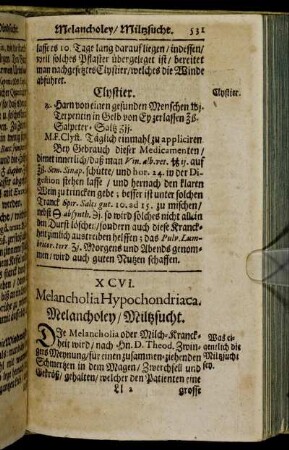 Melancholey/ Miltzsucht. 531
lassers 10. Tage lang darauf liegen/ indessen/
weil solches Pflaster übergeleget ist/ bereitet
man nachgesetztes Clystier/ welches die Winde
abführet.
Clystier.
Clystier.
Harn von einen gesunden Menschen
Terpentin in Gelb von Eyzerlassen
Salpeter-Saltz
M.F. Clyst. Täglich einmahl zu appliciren.
Bey Gebrauch dieser Medicamenten/
dienet innerlich/ daß man Vin. alb. vet. auf
Sem. Sinap. schütte/ und hor. 24. in der Di-
gestion stehen lasse/ und hernach den klaren
Wein zu trincken gebe; besser ist unter solchen
Tranck Spir. Salis gut. 10. ad 15. zu mischen/
nebst absinth. so wird solches nicht allein
den Durst löschen/ sondern auch diese Kranck-
heit zimlich austreiben helffen; das Pulv. Lum-
bricor. terr. Morgens und Abends genom-
men/ wird auch guten Nutzen schaffen.
XCVI.
Melancholia Hypochondriaca.
Melancholey/ Miltzsucht.
DJe Melancholia oder Miltz-Kranck-
heit wird/ nach Hn. D. Theod. Zwin-
gers Meynung/ für einen zusammen-ziehenden
Schmertzen in dem Magen/ Zwerchfell und
Gekröß/ gehalten/ welcher den Patienten eine
Was ei-
gentlich die
Miltzsucht
sey.
Ll 2 grosse